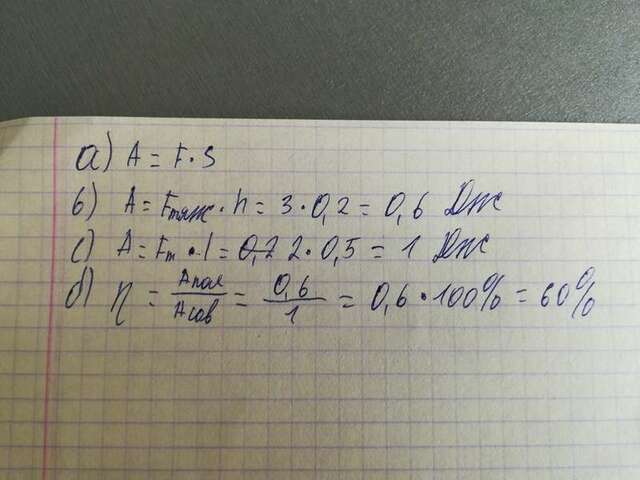 а) A = F · S
в) A = Fтяж · h = 3 · 0,2 = 0,6 Дж
с) A = Fт · l = 0,2 2 · 0,5 = 1 Дж
д) η = Aпол / Aсов = 0,6 / 1 = 0,6 · 100% = 60%